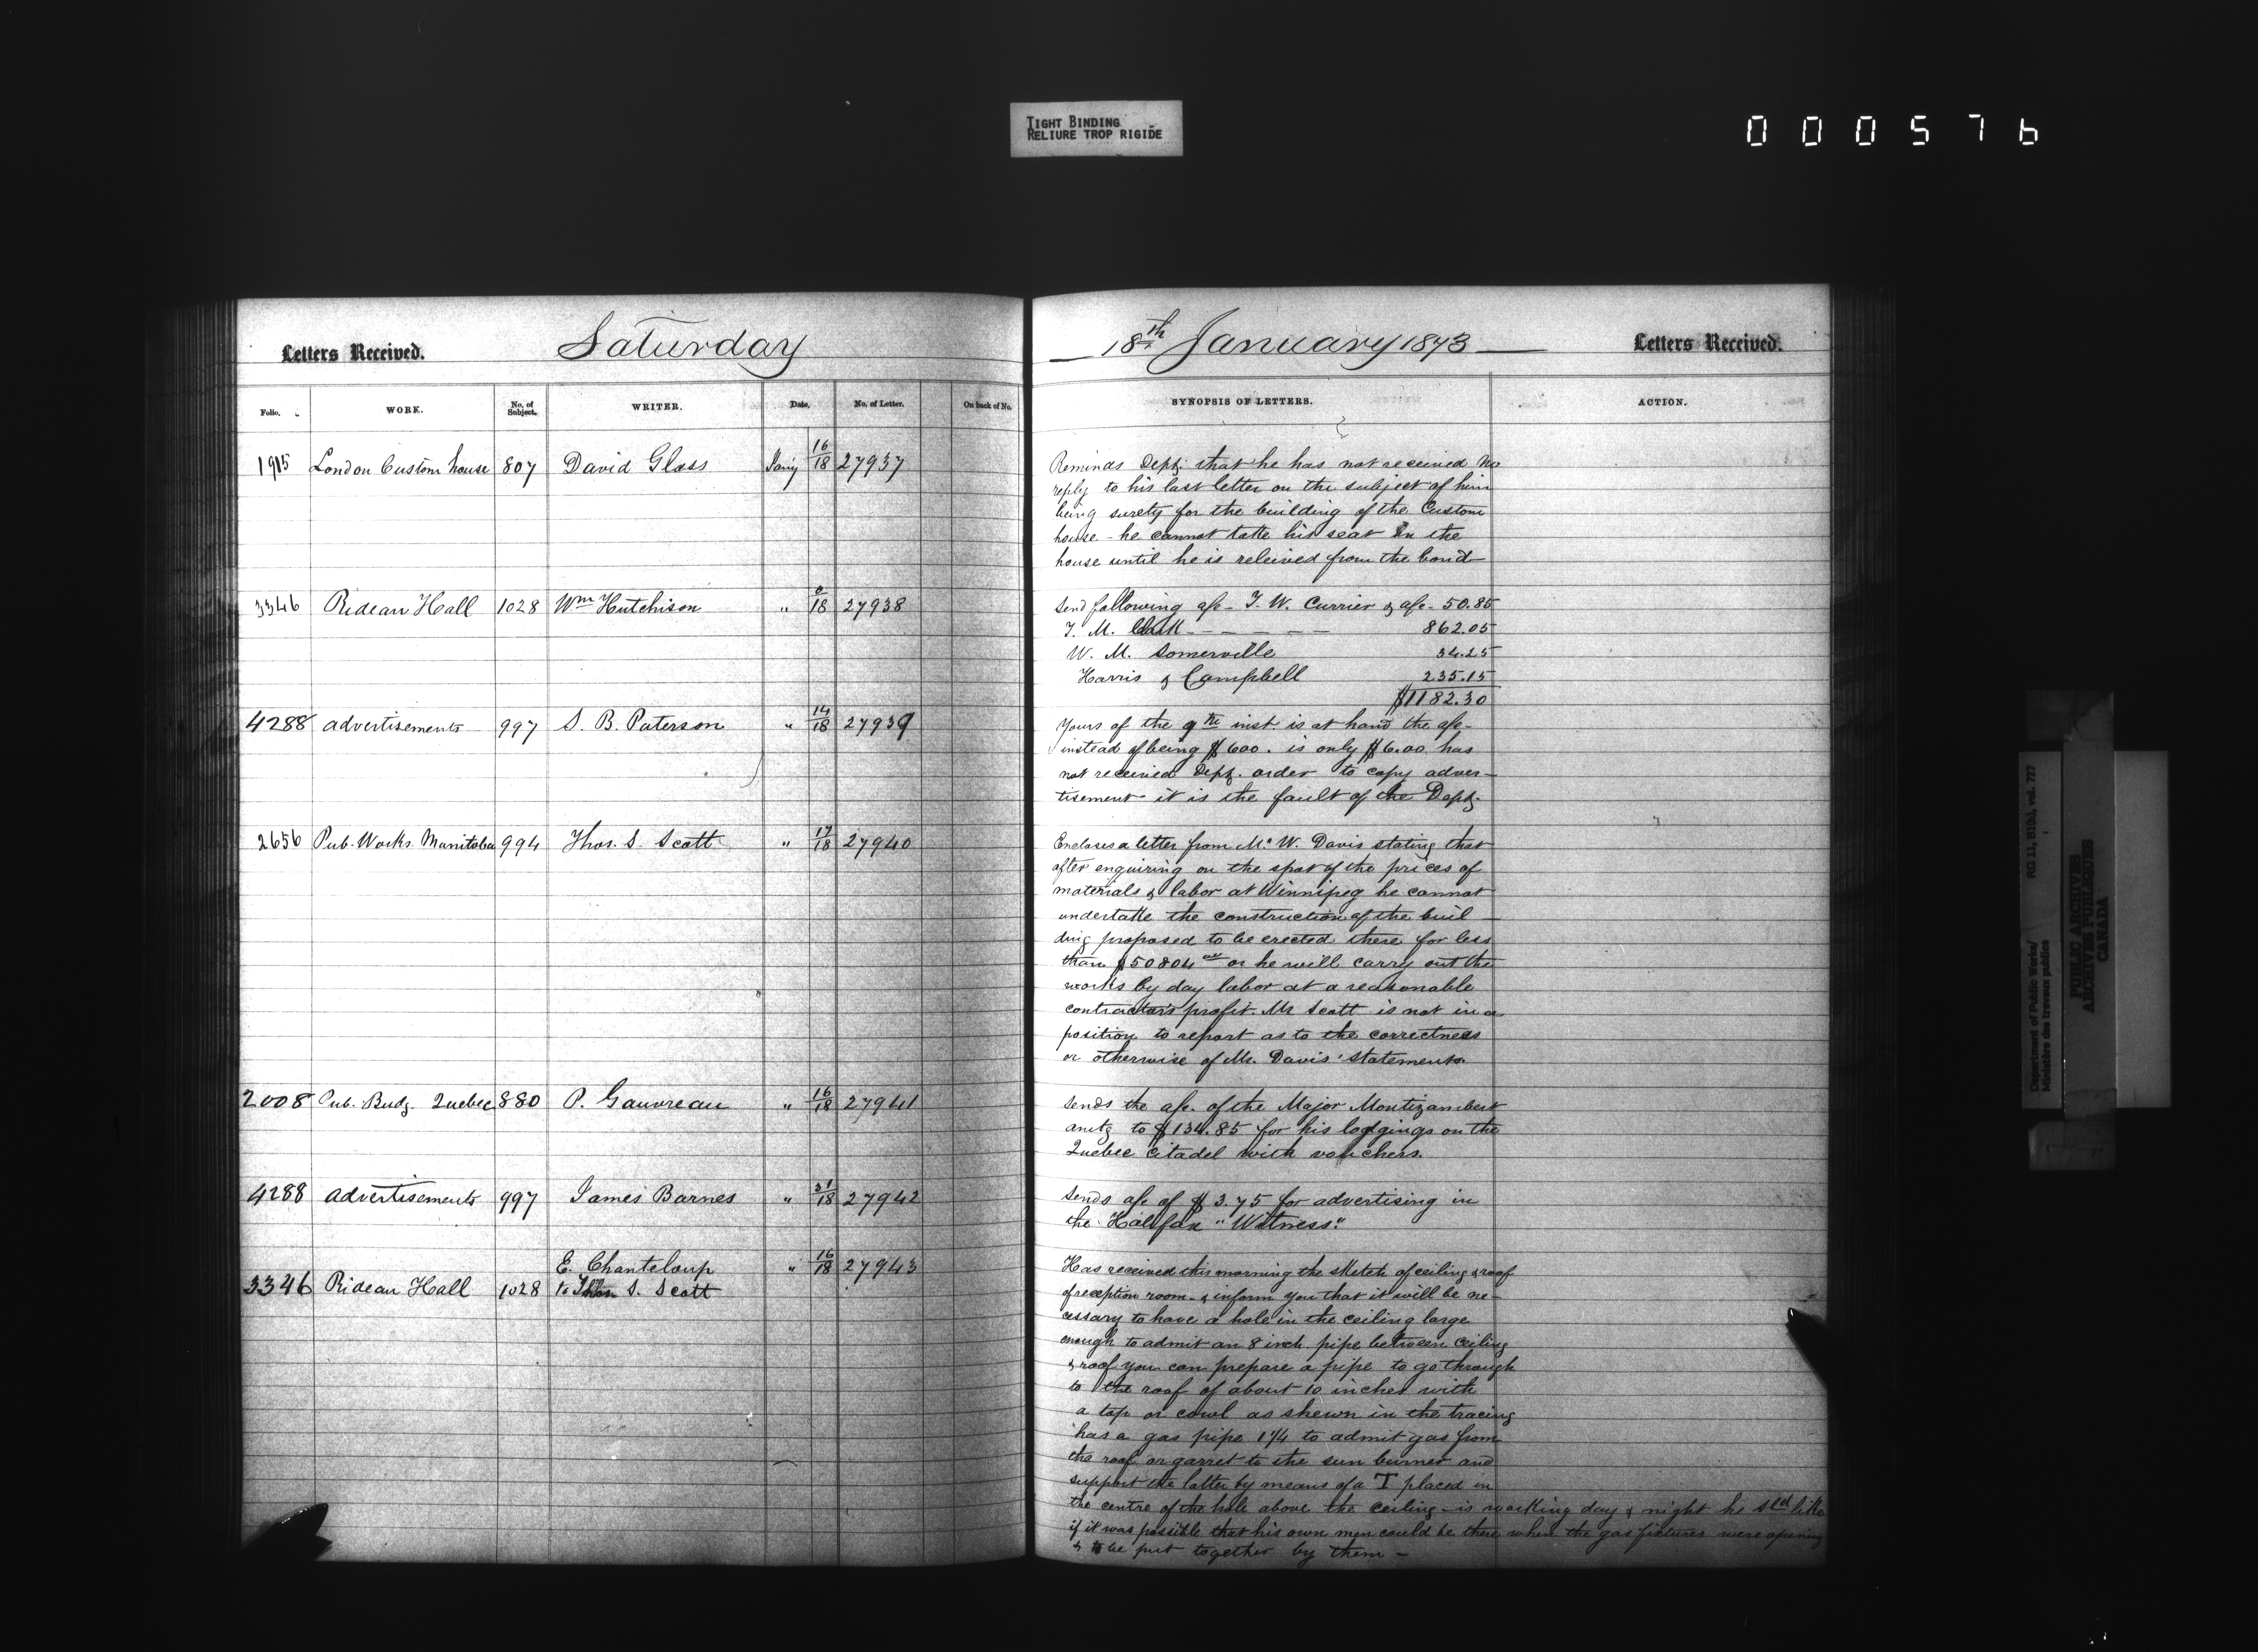 TIGHT BINDING
RELIURE TROP RIGIDE
000576
Letters Received.
Saturday
18th January 1873
Letters Received.
Folio.
WORK.
No. of Subject.
WRITER.
Date.
No. of Letter.
On back of No.
SYNOPSIS OF LETTERS.
ACTION.
1915 London Custom house 807 David Glass Jany 16/18 27937
Reminds Dept. that he has not received no
reply to his last letter on the subject of him
being surety for the building of the Custom
house - he cannot take his seat in the
house until he is releived from the bond
3346 Rideau Hall 1028 Wm Hutchison " 8/18 27938
Send following a/c - T. W. Currier & a/c - 50.85
T. M. Clark - - - - - 862.05
W. M. Somerville 34.25
Harris & Campbell 235.15
$1182.30
4288 advertisements 997 S. B. Paterson " 14/18 27939
Yours of the 9th inst. is at hand the a/c -
instead of being $600. is only $6.00 has
not received Dept. order to copy adver-
tisement it is the fault of the Dept.
2656 Pub. Works. Manitoba 994 Thos. S. Scott " 17/18 27940
Encloses a letter from Mr. W. Davis stating that
after enquiring on the spot of the prices of
materials & labor at Winnipeg he cannot
undertake the construction of the buil -
ding proposed to be erected there for less
than $50804 00 or he will carry out the
works by day labor at a reasonable
contractor's profit. Mr Scott is not in a
position to report as to the correctness
or otherwise of Mr. Davis' statements.
2008 Pub. Budg. Quebec 880 P. Gauvreau " 16/18 27941
Sends the a/c. of the Major Montizambert
amtg to $134.85 for his lodgings on the
Quebec Citadel with vouchers.
4288 advertisements 997 James Barnes " 31/18 27942
Sends a/c of $3.75 for advertising in
the Halifax "Witness"
3346 Rideau Hall 1028 E. Chanteloup " 16/18 27943
to Thos S. Scott
Has received this morning the sketch of ceiling & roof
of reception room - & inform you that it will be ne-
cessary to have a hole in the ceiling large
enough to admit an 8 inch pipe between ceiling
& roof you can prepare a pipe to go through
to the roof of about 10 inches with
a top or cowl as shewn in the tracing
has a gas pipe 1 1/4 to admit gas from
the roof or garret to the sun burner and
support the latter by means of a T placed in
the centre of the hole above the ceiling - is working day & night he sld like
if it was possible that his own men could be there when the gas fixtures were opening
& to be put together by them -
Department of Public Works/
Ministère des travaux publics
RG 11, B1(b), vol. 727
PUBLIC ARCHIVES
ARCHIVES PUBLIQUES
CANADA